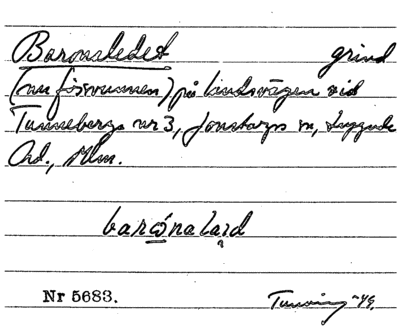 Baronsledet grind
(nu försvunnen) på Lindsvägen vid
Tunneberga nr 3, Jonstorps sn, Luggude
hd., Mlm.
barǫ́nalaɪd
Nr 5683.
Tuneving -46.